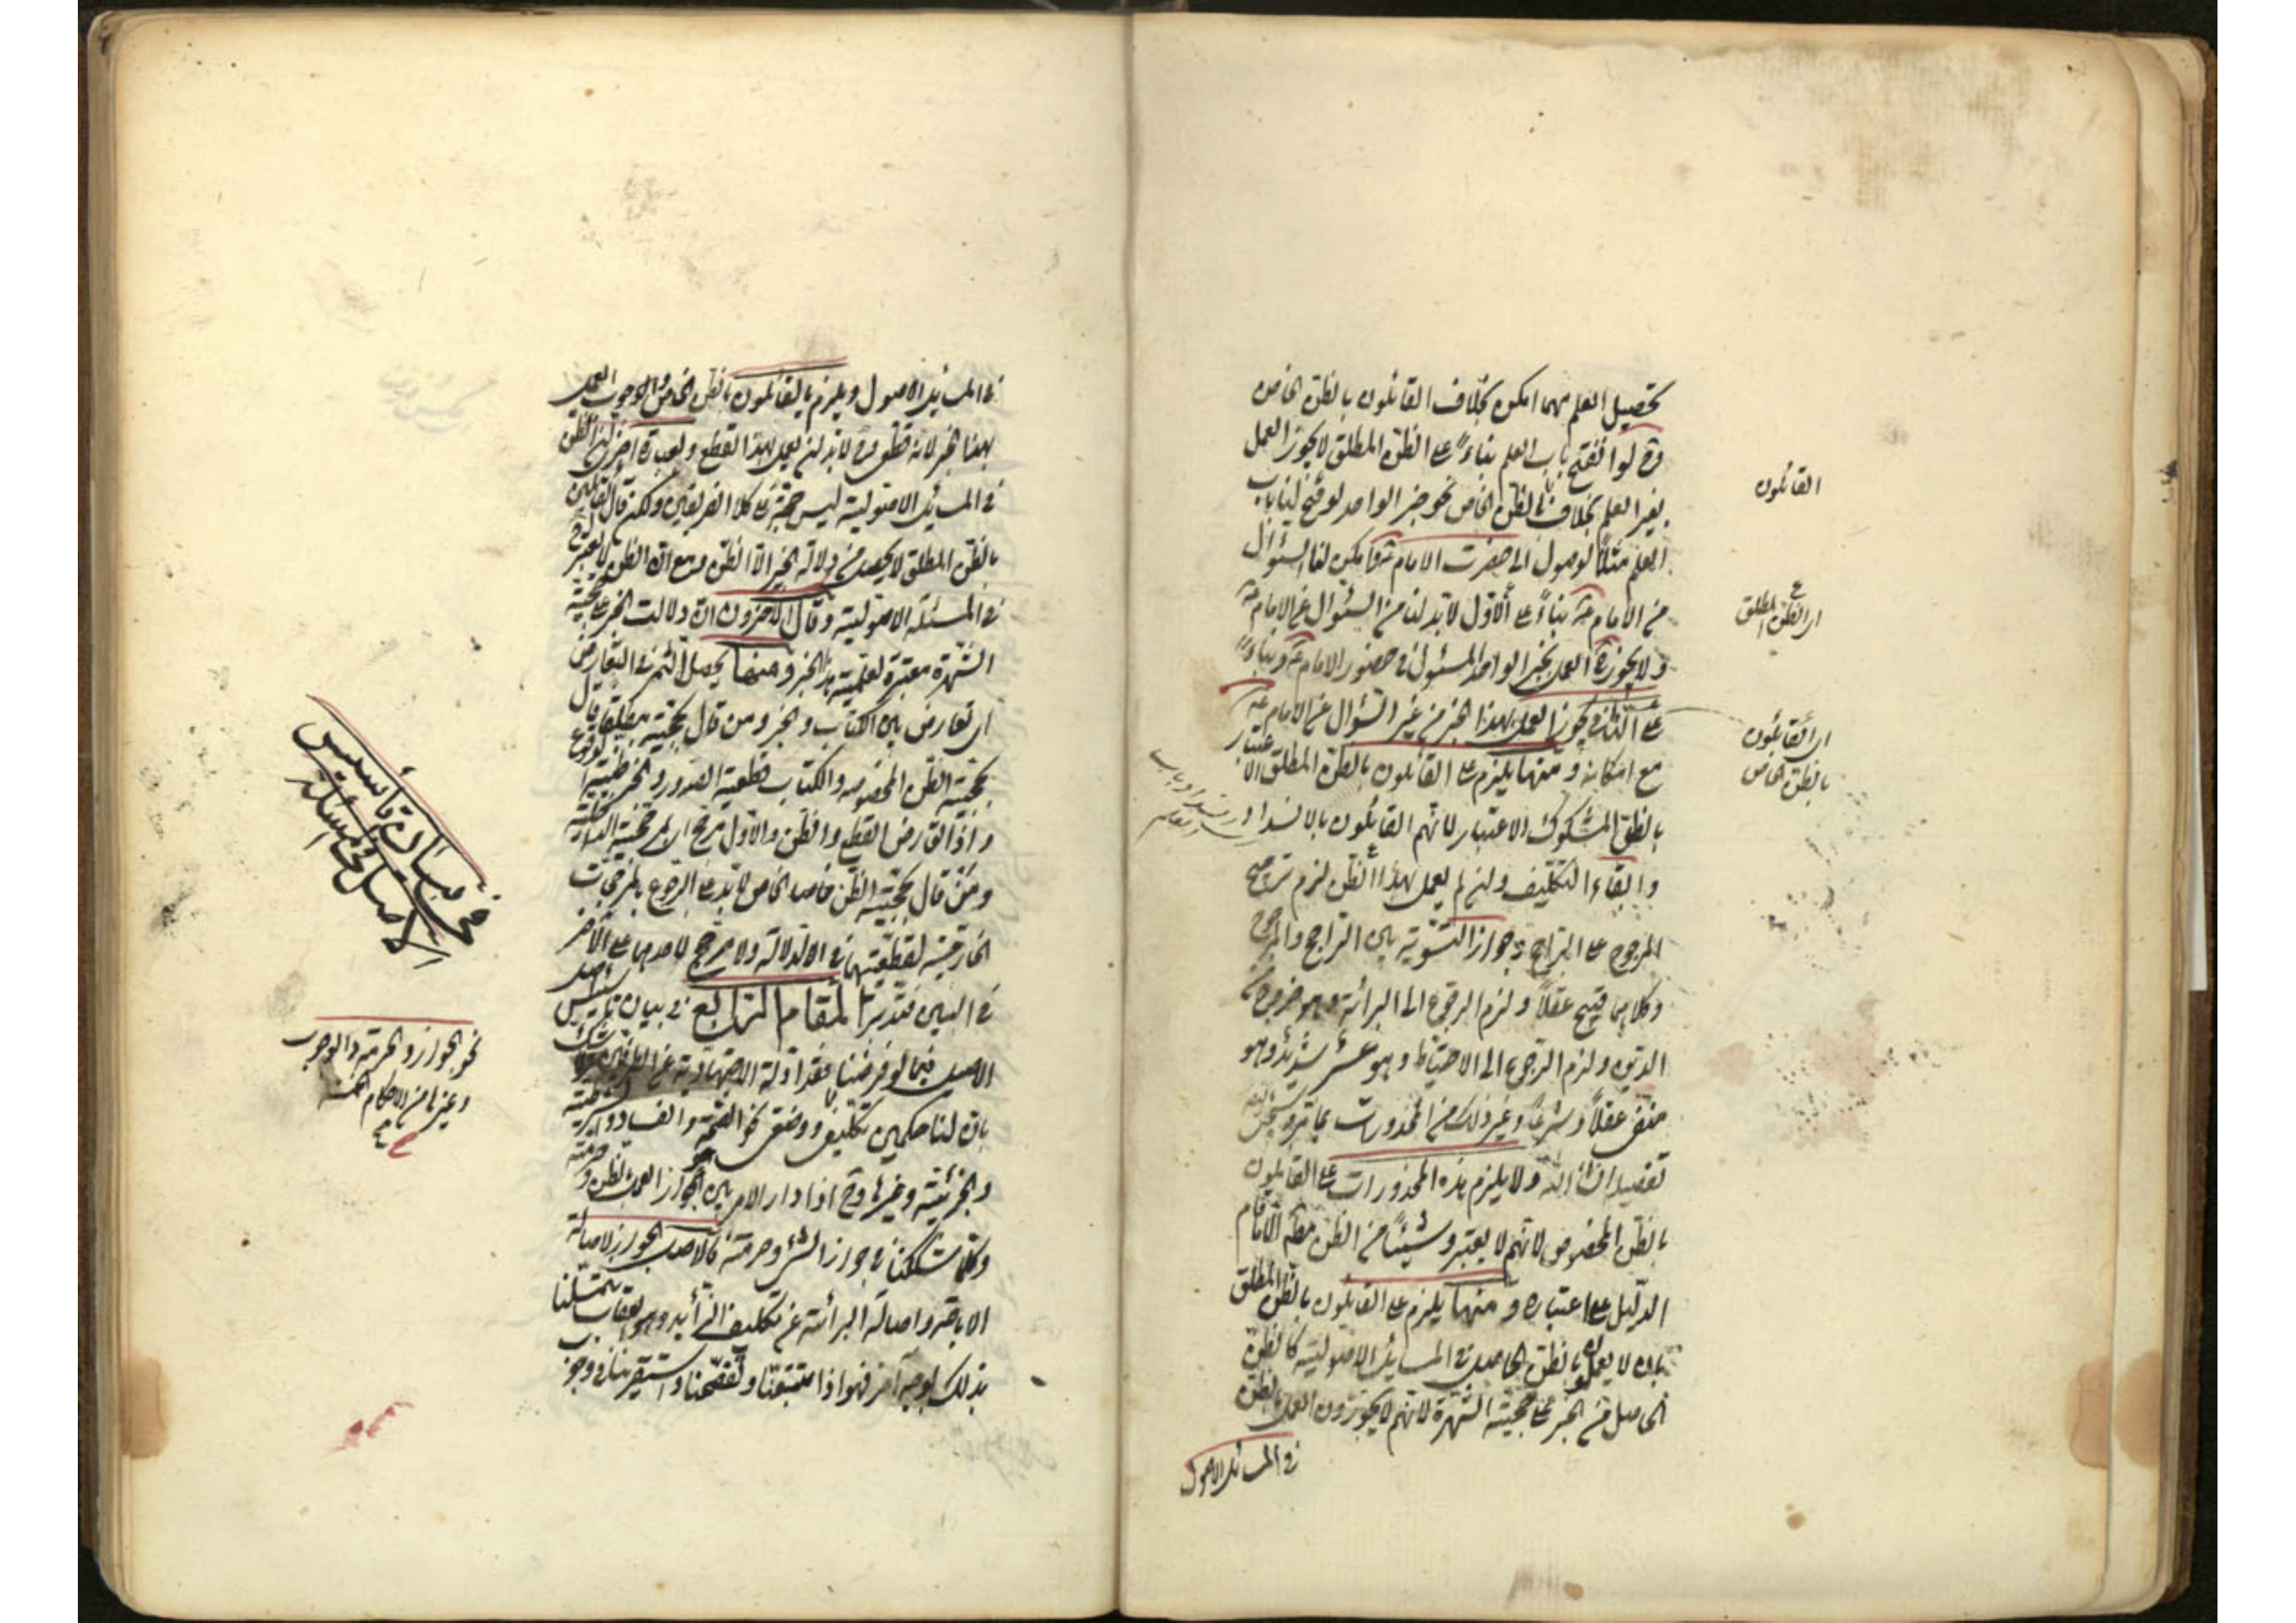 تحصيل العلم مهما امكن بخلاف القائلون بالظن الخاص
وح لو انفتح باب العلم بناءً على الظن المطلق لا يجوز العمل
بغير العلم بخلاف الظن الخاص نحو خبر الواحد لو فتح لنا باب
العلم مثلاً لوصول الى حضرت الامام ع وامكن لنا السئوال
من الامام ع بناءً على الاول لابد لنا من السئوال عن الامام ع
ولا يجوز العمل بخبر الواحد المسئول في حضور الامام ع وبناءً
على الثاني يجوز العمل بهذا الخبر من غير السئوال عن الامام ع
مع امكانه ومنها يلزم على القائلون بالظن المطلق الاعتبار
بالظن المشكوك الاعتبار لانهم القائلون بالانسداد
وابقاء التكليف ولئن لم يعمل بهذا الظن لزم ترجيح
المرجوح على الراجح وجواز التسوية بين الراجح والمرجوح
وكلاهما قبيح عقلاً ولزم الرجوع الى البرائة وهو خروج عن
الدين ولزم الرجوع الى الاحتياط وهو عسر شديد وهو
منفى عقلاً وشرعاً وغير ذلك من المحذورات
تفصيله انشاء الله ولا يلزم هذه المحذورات على القائلون
بالظن المخصوص لانهم لا يعتبرو شيئاً من الظن الا ما قام
الدليل على اعتباره ومنها يلزم على القائلون بالظن المطلق
بان لا يعملو بالظن الحاصل في المسائل الاصولية كالظن
الحاصل من الخبر على حجية الشهرة لانهم لا يجوزون العمل بالظن
في المسائل الاصول
القائلون
اى الظن المطلق
اى القائلون
بالظن الخاص
باب
العلم
في المسائل الاصول ويلزم بالقائلون بالظن الخاص والوجوب العمل
بهذا الخبر لانه قطعى ولابد لنا ان يعمل بهذا القطع وبعبارة اخرى الظن
في المسائل الاصولية ليس حجة على كلا الفريقين ولكن قال القائلين
بالظن المطلق لا يحصل من دلالة الخبر الا الظن ومع ان الظن لا يعتبر
في المسئلة الاصولية وقال الاخرون ان دلالت الخبر على حجية
الشهرة معتبرة لعلمية هذا الخبر ومنها يحصل الثمر في التعارض
اى تعارض بين الكتاب والخبر ومن قال بحجية مطلقا قال
بحجية الظن المخصوصه والكتاب قطعية الصدور والخبر ظنية
واذا تعارض القطع والظن والاول مرجح
ومن قال بحجية الظن خاصا الخاص لابد على الرجوع بالمرجحات
الخارجية لقطعيتهما في الدلالة ولا مرجح لاحدهما على الآخر
في البين فتدبر المقام الرابع في بيان تاسيس
الاصل فيما لو فرضنا فقد ادلة الاجتهادية عن الطرفين
بان لنا حكمين تكليفى ووضعى نحو الصحة والفساد
والجزئية وغيرها وح اذا دار الامر بين الجواز العمل بالظن وحرمته
وكلما شككنا في جواز الشئ وحرمته فالاصل الجواز لاصالة
الاباحة واصالة البرائة عن تكليف
بذلك بوجه آخر فهو اذا تتبعنا وتفحصنا واستقرينا في وجوب
في بيان تأسيس
الاصل في مسئلة
نحو الجواز والحرمة والوجوب
وغيرها من الاحكام الخمسة